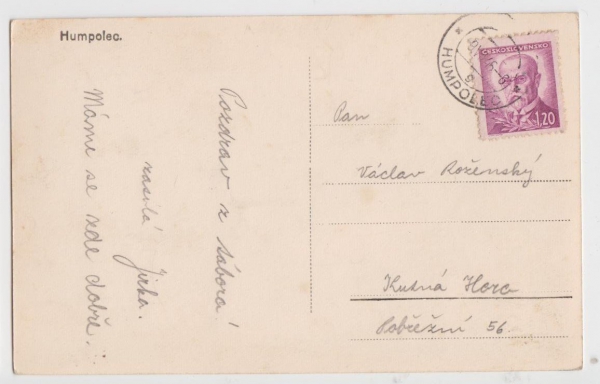 Humpolec.
Pozdrav z tábora!
zasílá Jirka.
Máme se zde dobře.
ČESKOSLOVENSKO
1,20
HUMPOLEC
Pan
Václav Roženský
Kutná Hora
Pobřežní 56.